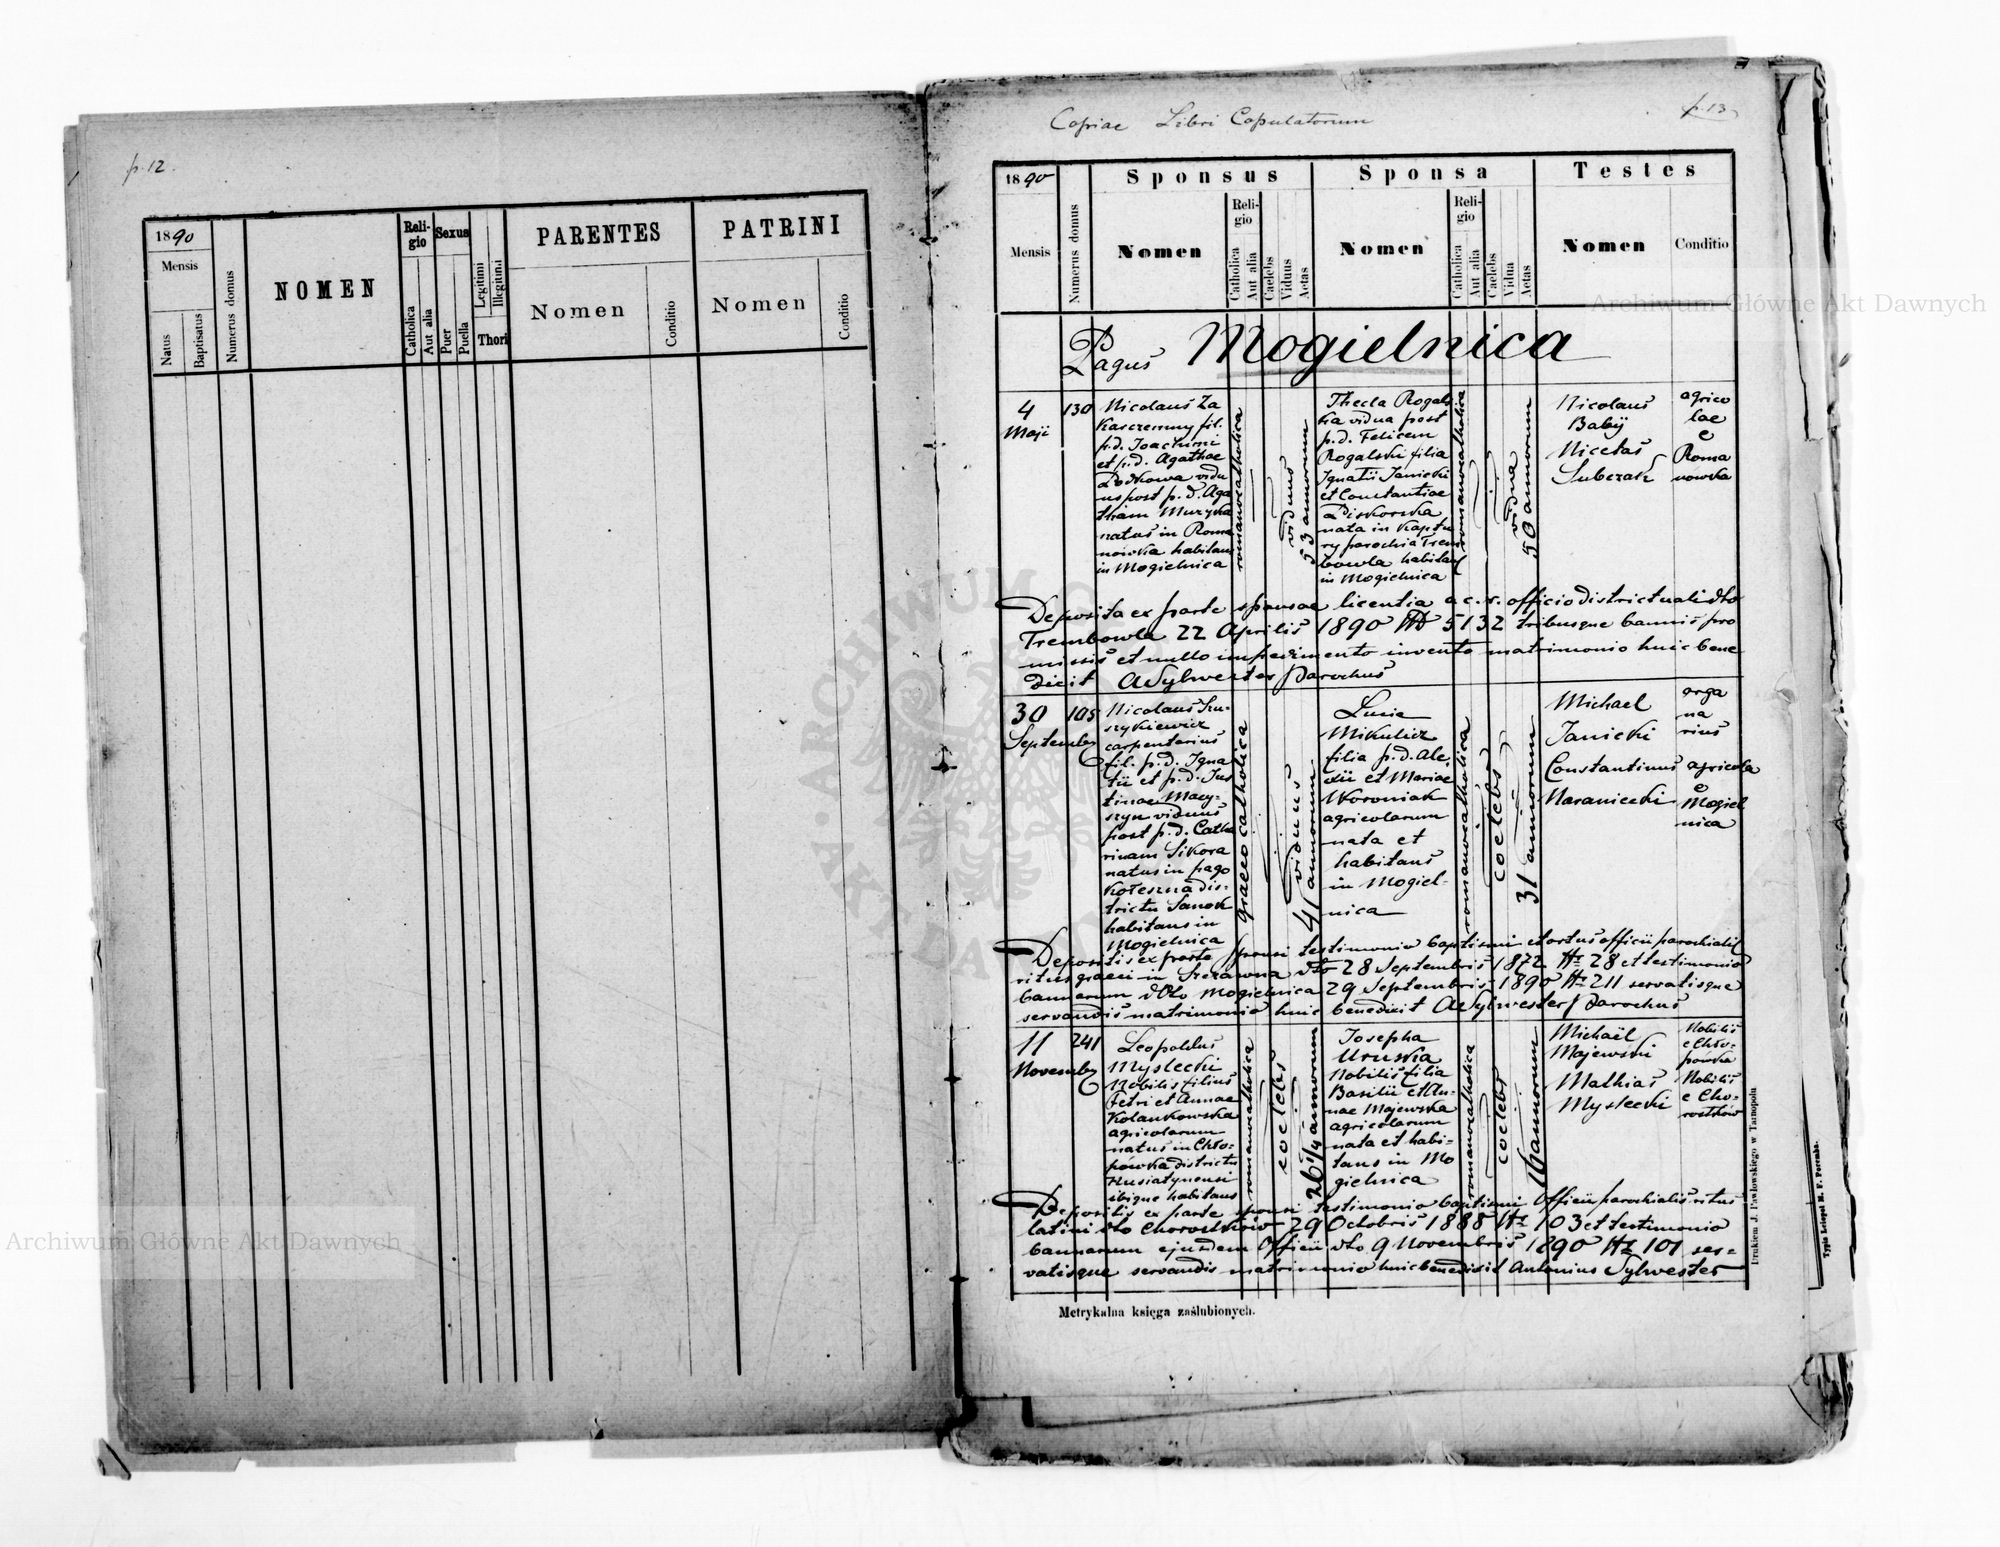 p. 12.
1890
Mensis
Natus
Baptisatus
Numerus domus
NOMEN
Reli-
gio
Catholica
Aut alia
Sexus
Puer
Puella
Legitimi
Illegitimi
Thori
PARENTES
Nomen
Conditio
PATRINI
Nomen
Conditio
Copiae Libri Copulatorum
p. 13
1890
Mensis
Numerus domus
Sponsus
Nomen
Reli-
gio
Catholica
Aut alia
Caelebs
Viduus
Aetas
Sponsa
Nomen
Reli-
gio
Catholica
Aut alia
Caelebs
Vidua
Aetas
Testes
Nomen
Conditio
Pagus Mogielnica
4
Maji
130
Nicolaus Za
Karczemny fil.
p.d. Joachimi
et p.d. Agathae
vidu
us post p.d. Aga
tham Muzyka
natus in Roma
nówka habitans
in Mogielnica
romanocatholica
viduus
53 annorum
Thecla Rogals
ka vidua post
p.d. Felicem
Rogalski filia
Ignatii Janicki
et Constantiae
nata in Kaptu
ry parochia Trem
bowla habitans
in Mogielnica
romanocatholica
vidua
50 annorum
Nicolaus
Babij
Nicetas
Suberak
agrico
lae
e
Roma
nowka
Deposita ex parte sponsae licentia a c. r. officio districtuali dto
Trembowla 22 Aprilis 1890 № 5132 tribusque bannis pro
missis et nullo impedimento invento matrimonio huic bene
dicit ASylwester Parochus
30
September
105
Nicolaus Szu-
szykiewicz
carpentarius
fil. p.d. Igna
tii et p.d. Jus
tinae Macy-
szyn viduus
post p.d. Catha
rinam Sikora
natus in pago
Kołeszna dis-
trictu Sanok
habitans in
Mogielnica
graecocatholica
viduus
41 annorum
Lucia
Mikulicz
filia p.d. Ale-
xii et Mariae
Woroniak
agricolarum
nata et
habitans
in Mogiel-
nica
romanocatholica
coelebs
31 annorum
Michael
Janicki
Constantinus
Naraniecki
orga
na
rius
agricola
e
Mogiel
nica
Depositis ex parte sponsi testimonio baptismi et ortus officii parochialis
ritus graeci in Szczawna dto 28 Septembris 1872 № 28 et testimonio
bannorum dto Mogielnica 29 Septembris 1890 № 211 servatisque
servandis matrimonio huic benedicit ASylwester Parochus
11
November
241
Leopoldus
Myslecki
Nobilis filius
Petri et Annae
Kolankowska
agricolarum
natus in Chło-
pówka districtu
Husiatynensi
ibique habitans
romanocatholica
coelebs
26 1/4 annorum
Josepha
Uruska
Nobilis filia
Basilii et An-
nae Majewska
agricolarum
nata et habi-
tans in Mo
gielnica
romanocatholica
coelebs
16 annorum
Michaël
Majewski
Mathias
Myslecki
Nobilis
e Chło-
pówka
Nobilis
e Cho-
rostków
Depositis ex parte sponsi testimonio baptismi Officii parochialis ritus
latini dto Chorostków 29 Octobris 1888 № 103 et testimonio
bannorum ejusdem Officii dto 9 Novembris 1890 № 101 ser-
vatisque servandis matrimonio huic benedicit Antonius Sylwester
Metrykalna księga zaślubionych.
Drukiem J. Pawłowskiego w Tarnopolu
Archiwum Główne Akt Dawnych
Archiwum Główne Akt Dawnych